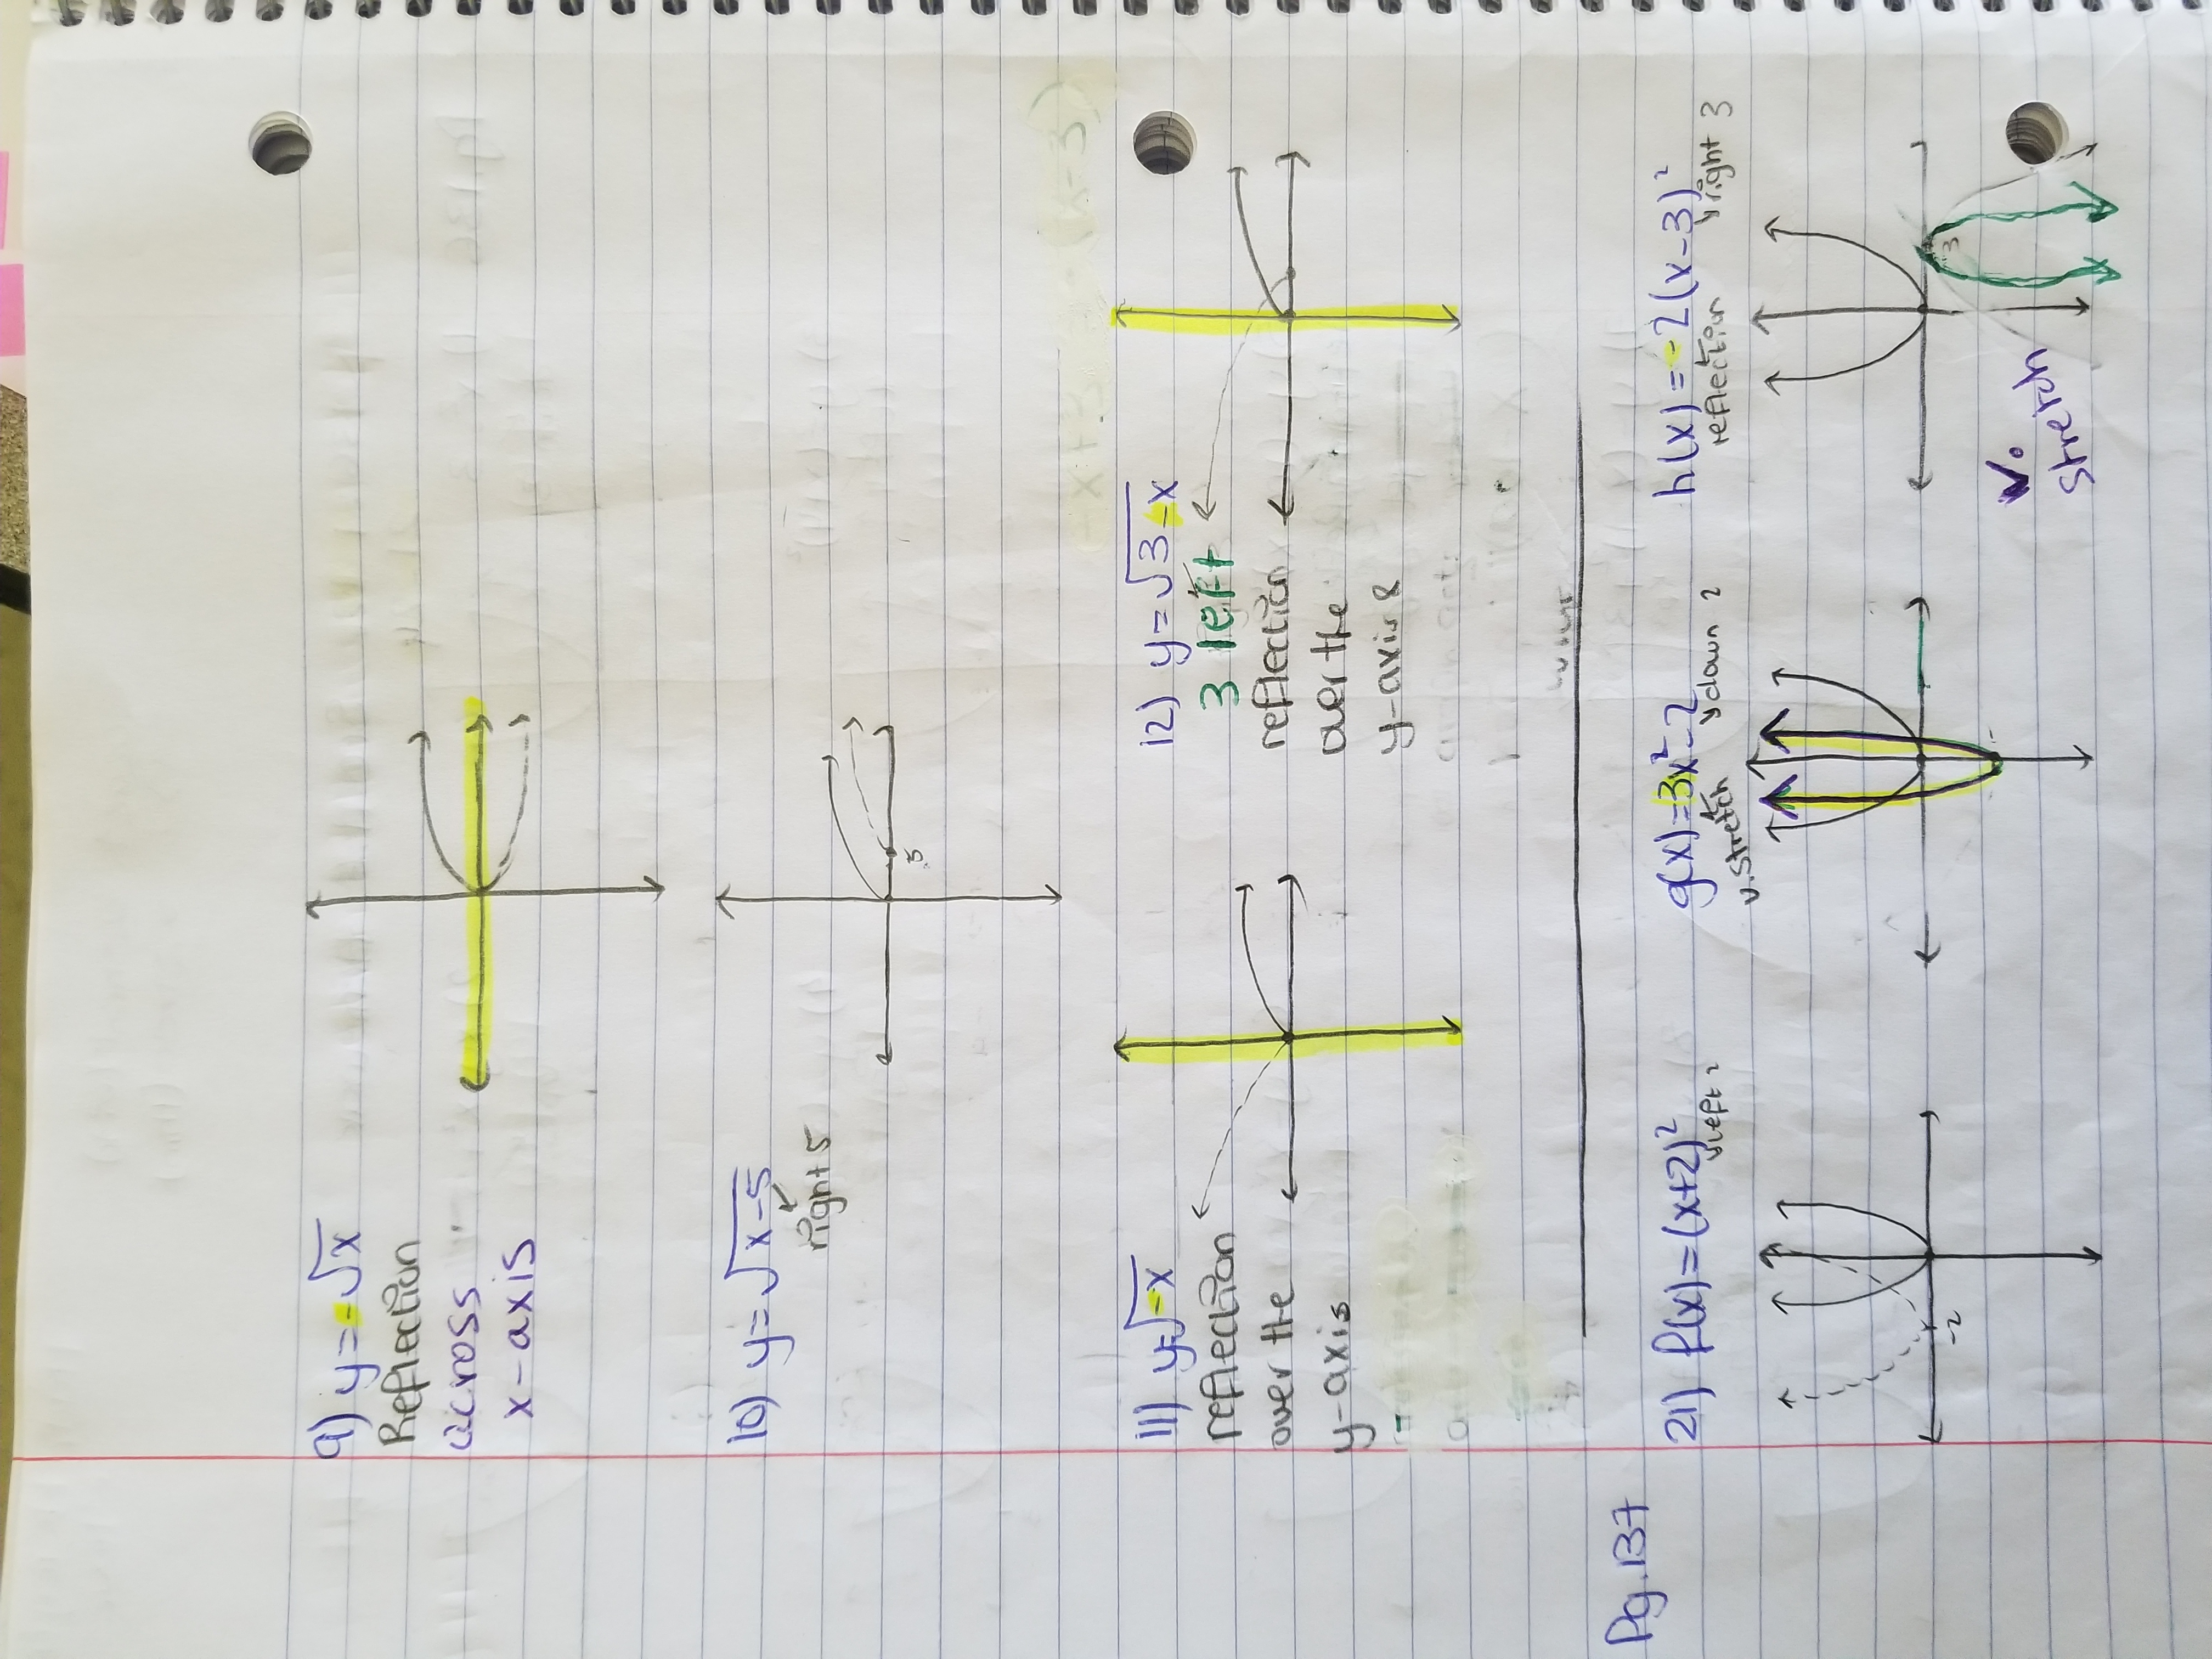 9) y=-√x
Reflection
across
x-axis
10) y=√x-5
right 5
5
11) y=√-x
reflection
over the
y-axis
12) y=√3-x
3 left
reflection
over the
y-axis
Pg. 137
21) f(x)=(x+2)²
left 2
-2
g(x)=3x²-2
v. stretch
down 2
h(x)=-2(x-3)²
reflection
right 3
3
V.
stretch